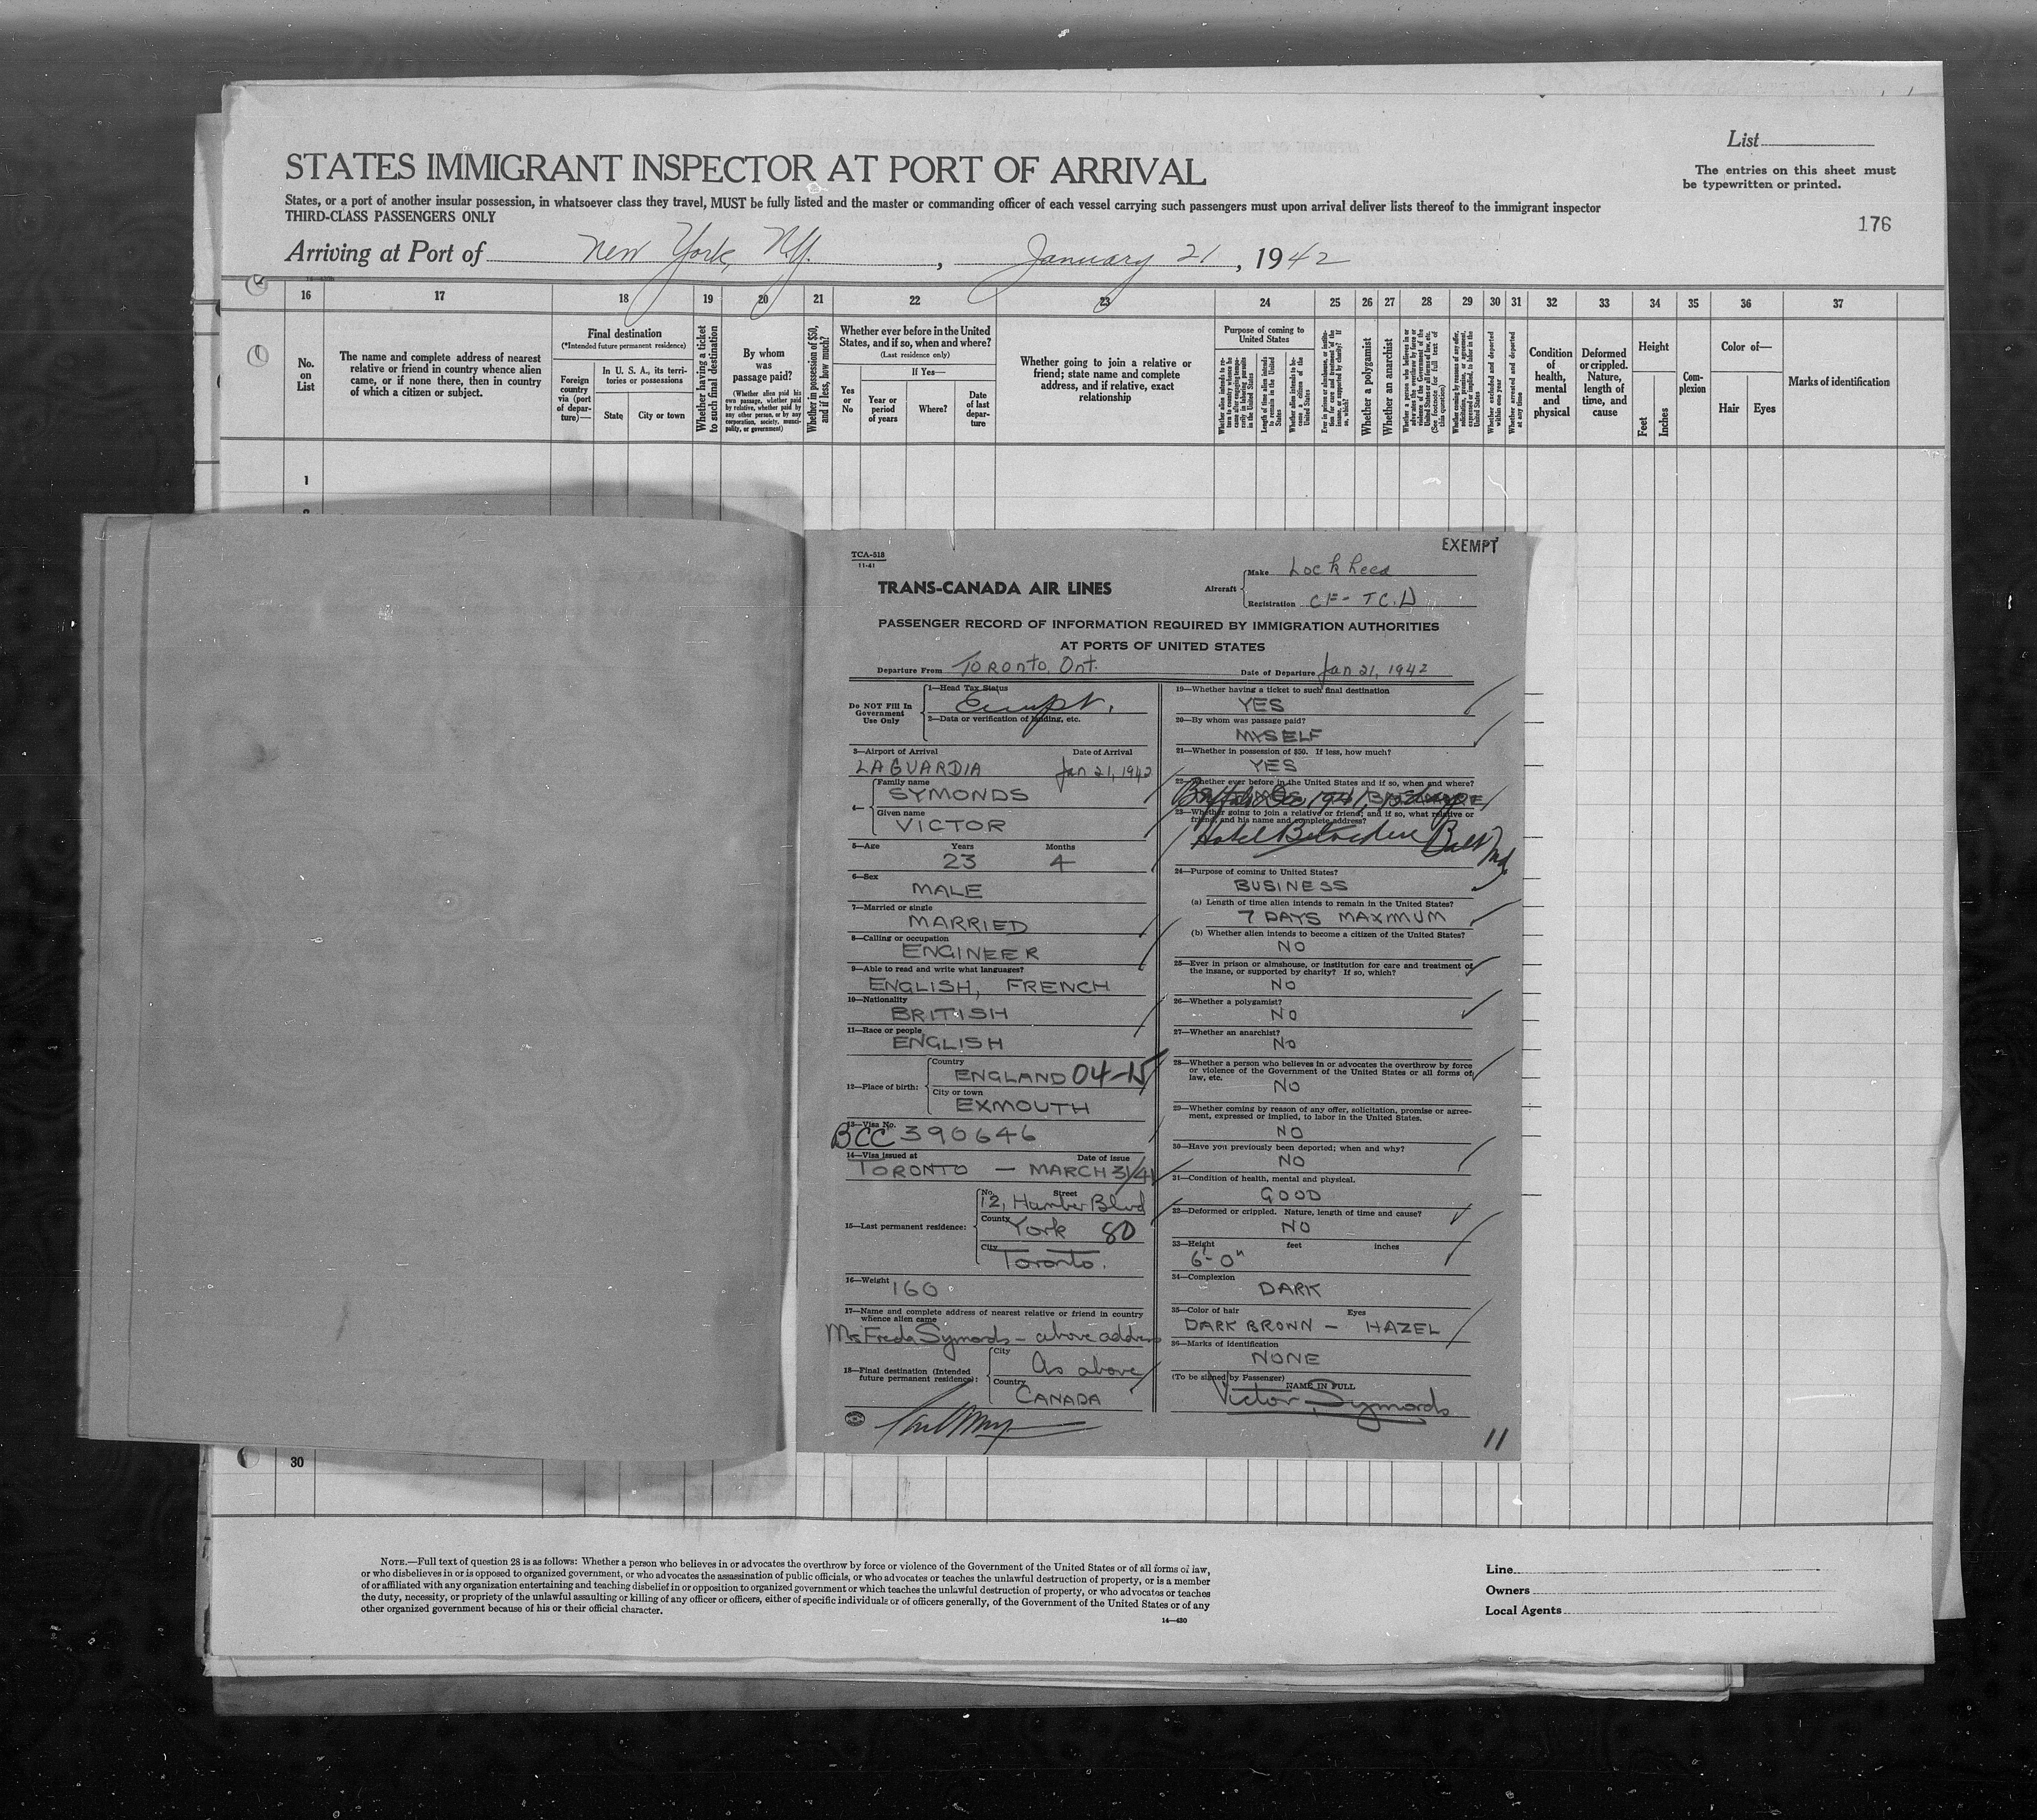 List
The entries on this sheet must
be typewritten or printed.
176
STATES IMMIGRANT INSPECTOR AT PORT OF ARRIVAL
States, or a port of another insular possession, in whatsoever class they travel, MUST be fully listed and the master or commanding officer of each vessel carrying such passengers must upon arrival deliver lists thereof to the immigrant inspector
THIRD-CLASS PASSENGERS ONLY
Arriving at Port of New York, N.Y., January 21, 1942
16 17 18 19 20 21 22 23 24 25 26 27 28 29 30 31 32 33 34 35 36 37
No. on List
The name and complete address of nearest
relative or friend in country whence alien
came, or if none there, then in country
of which a citizen or subject.
Final destination
(*Intended future permanent residence)
Foreign country via (port of departure)—
In U. S. A., its territories or possessions
State
City or town
Whether having a ticket to such final destination
By whom was passage paid?
(Whether alien paid his own passage, whether paid by relative, whether paid by any other person, or by any corporation, society, municipality, or government)
Whether in possession of $50, and if less, how much?
Whether ever before in the United
States, and if so, when and where?
(Last residence only)
Yes or No
If Yes—
Year or period of years
Where?
Date of last departure
Whether going to join a relative or
friend; state name and complete
address, and if relative, exact
relationship
Purpose of coming to United States
Whether alien intends to return to country whence he came after engaging temporarily in laboring pursuits in the United States
Length of time alien intends to remain in the United States
Whether alien intends to become a citizen of the United States
Ever in prison or almshouse, or institution for care and treatment of the insane, or supported by charity? If so, which?
Whether a polygamist
Whether an anarchist
Whether a person who believes in or advocates the overthrow by force or violence of the Government of the United States or all forms of law, etc. (See footnote for full text of this question)
Whether coming by reason of any offer, solicitation, promise, or agreement, expressed or implied, to labor in the United States
Whether excluded and deported within one year
Whether arrested and deported at any time
Condition of health, mental and physical
Deformed or crippled. Nature, length of time, and cause
Height
Feet
Inches
Complexion
Color of—
Hair
Eyes
Marks of identification
1
TCA-518
11-41
EXEMPT
TRANS-CANADA AIR LINES
Aircraft
Make Lockheed
Registration CF-TCD
PASSENGER RECORD OF INFORMATION REQUIRED BY IMMIGRATION AUTHORITIES
AT PORTS OF UNITED STATES
Departure From Toronto, Ont.
Date of Departure Jan 21, 1942
Do NOT Fill In
Government
Use Only
1—Head Tax Status
Exempt.
2—Data or verification of landing, etc.
3—Airport of Arrival Date of Arrival
LAGUARDIA Jan 21, 1942
4— Family name
SYMONDS
Given name
VICTOR
5—Age Years Months
23 4
6—Sex
MALE
7—Married or single
MARRIED
8—Calling or occupation
ENGINEER
9—Able to read and write what languages?
ENGLISH, FRENCH
10—Nationality
BRITISH
11—Race or people
ENGLISH
12—Place of birth:
Country
ENGLAND 04-15
City or town
EXMOUTH
13—Visa No.
BCC 390646
14—Visa issued at Date of issue
TORONTO — MARCH 31/41
15—Last permanent residence:
No. Street
12, Humber Blvd
County
York 80
City
Toronto.
16—Weight
160
17—Name and complete address of nearest relative or friend in country
whence alien came
Mrs Freda Symonds - above address
18—Final destination (Intended
future permanent residence):
City
As above
Country
CANADA
19—Whether having a ticket to such final destination
YES
20—By whom was passage paid?
MYSELF
21—Whether in possession of $50. If less, how much?
YES
22—Whether ever before in the United States and if so, when and where?
Buffalo Dec 1941
23—Whether going to join a relative or friend; and if so, what relative or
friend, and his name and complete address?
Hotel Belvedere Balt Md.
24—Purpose of coming to United States?
BUSINESS
(a) Length of time alien intends to remain in the United States?
7 DAYS MAXIMUM
(b) Whether alien intends to become a citizen of the United States?
NO
25—Ever in prison or almshouse, or institution for care and treatment of
the insane, or supported by charity? If so, which?
NO
26—Whether a polygamist?
NO
27—Whether an anarchist?
NO
28—Whether a person who believes in or advocates the overthrow by force
or violence of the Government of the United States or all forms of
law, etc.
NO
29—Whether coming by reason of any offer, solicitation, promise or agree-
ment, expressed or implied, to labor in the United States.
NO
30—Have you previously been deported; when and why?
NO
31—Condition of health, mental and physical.
GOOD
32—Deformed or crippled. Nature, length of time and cause?
NO
33—Height feet inches
6'-0"
34—Complexion
DARK
35—Color of hair Eyes
DARK BROWN - HAZEL
36—Marks of identification
NONE
(To be signed by Passenger)
NAME IN FULL
Victor Symonds
11
30
NOTE.—Full text of question 28 is as follows: Whether a person who believes in or advocates the overthrow by force or violence of the Government of the United States or of all forms of law,
or who disbelieves in or is opposed to organized government, or who advocates the assassination of public officials, or who advocates or teaches the unlawful destruction of property, or is a member
of or affiliated with any organization entertaining and teaching disbelief in or opposition to organized government or which teaches the unlawful destruction of property, or who advocates or teaches
the duty, necessity, or propriety of the unlawful assaulting or killing of any officer or officers, either of specific individuals or of officers generally, of the Government of the United States or of any
other organized government because of his or their official character.
14—430
Line
Owners
Local Agents